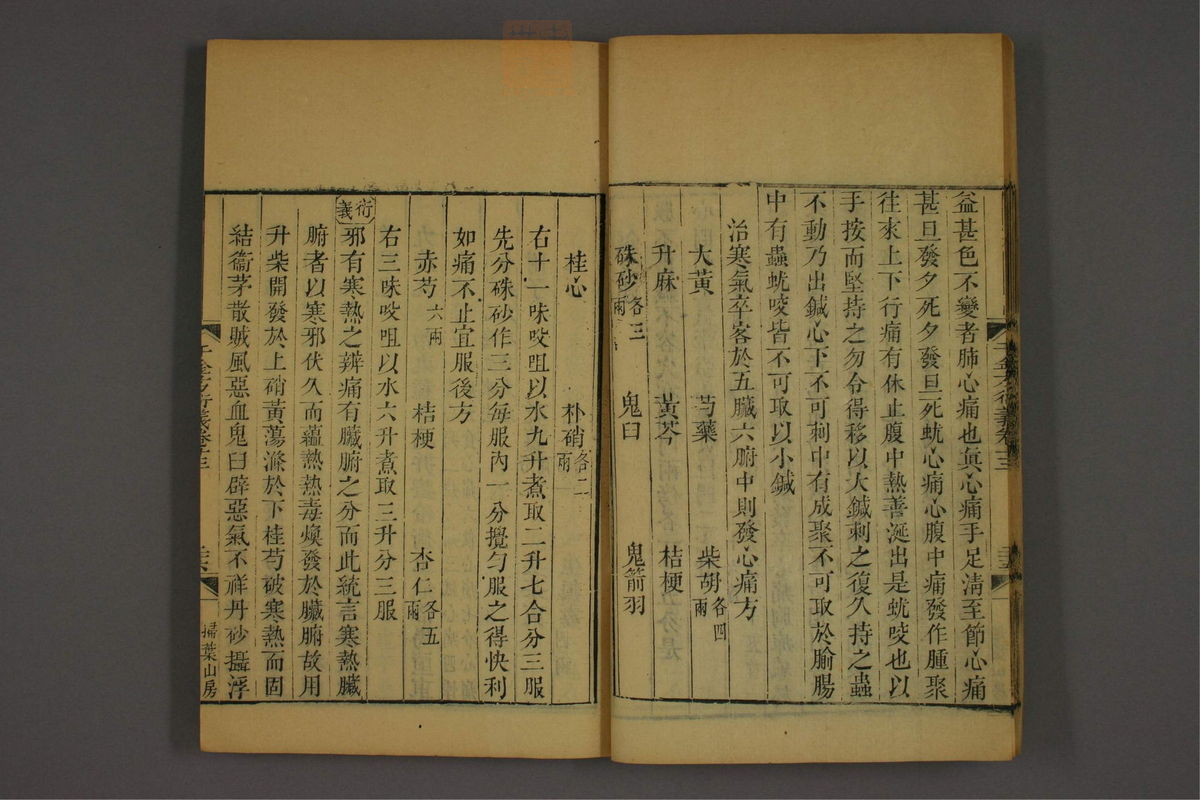 益甚色不變者肺心痛也真心痛手足淸至節心痛
甚旦發夕死夕發旦死蚘心痛心腹中痛發作腫聚
往來上下行痛有休止腹中熱善涎出是蚘咬也以
手按而堅持之勿令得移以大鍼刺之復久持之蟲
不動乃出鍼心下不可刺中有成聚不可取於腧腸
中有蟲蚘咬皆不可取以小鍼
治寒氣卒客於五臟六腑中則發心痛方
大黃 芍藥 柴胡各四兩
升麻 黃芩 桔梗
硃砂各三兩 鬼臼 鬼箭羽
桂心 朴硝各二兩
右十一味㕮咀以水九升煮取二升七合分三服
先分硃砂作三分每服內一分攪勻服之得快利
如痛不止宜服後方
赤芍六兩散 桔梗 杏仁各五兩
右三味㕮咀以水六升煮取三升分三服
衍義
邪有寒熱之辨痛有臟腑之分而此統言寒熱臟
腑者以寒邪伏久而蘊熱熱毒煥發於臟腑故用
升柴開發於上硝黃蕩滌於下桂芍破寒熱而固
結衞茅散賊風惡血鬼臼辟惡氣不祥丹砂攝浮
千金方衍義卷十三
掃葉山房